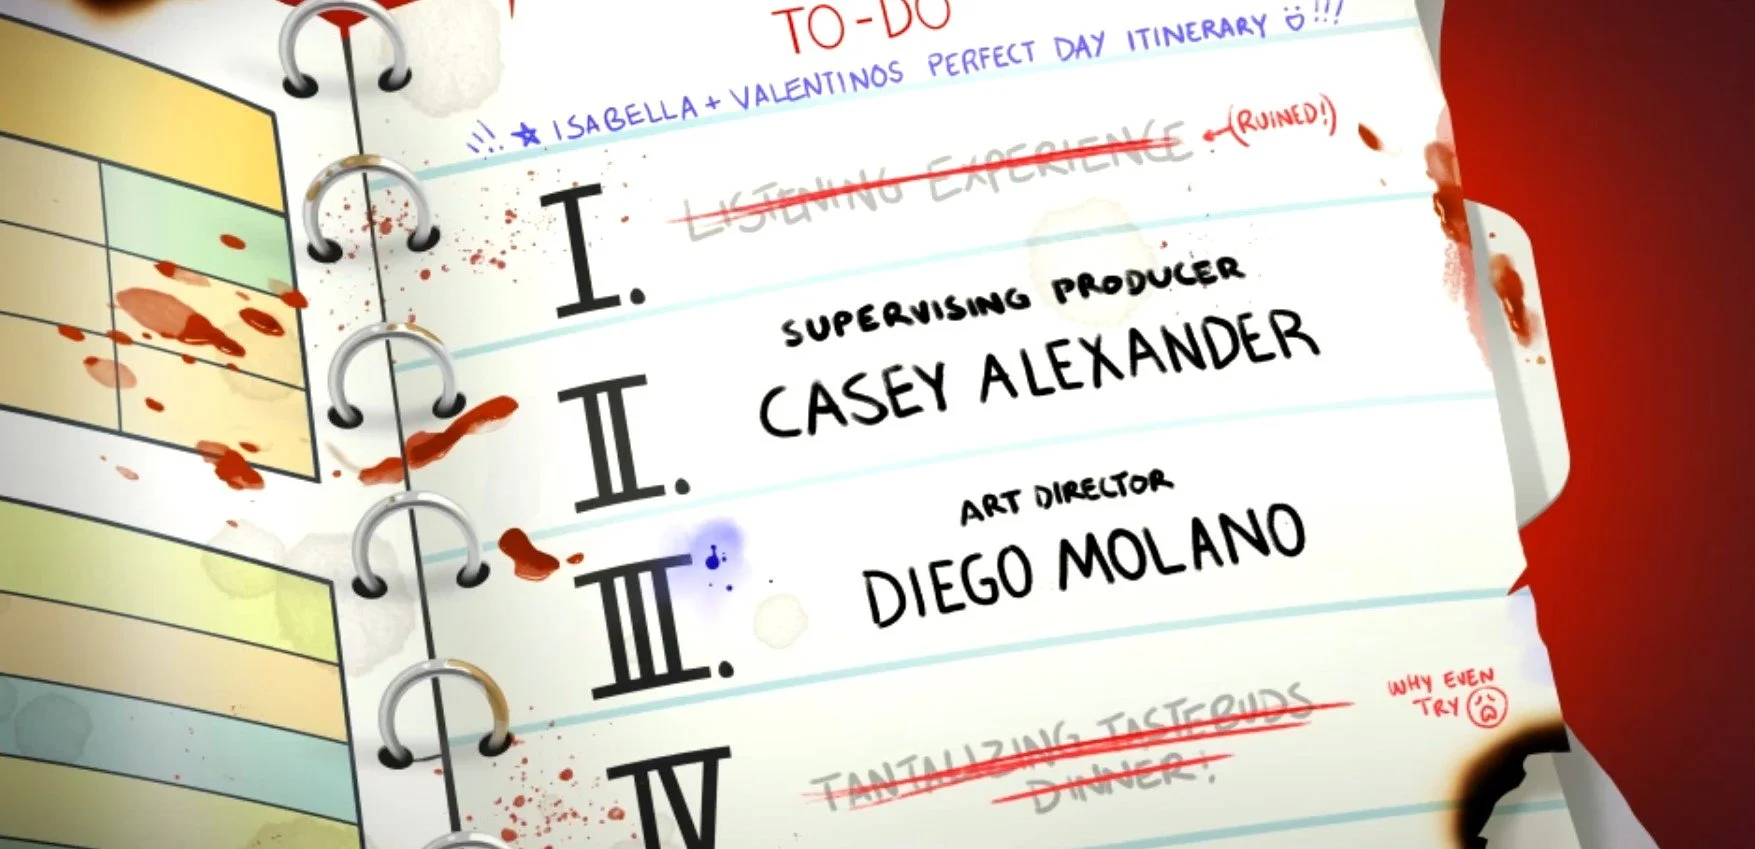 TO-DO
!!! ★ ISABELLA + VALENTINOS PERFECT DAY ITINERARY !!!
I. LISTENING EXPERIENCE ← (RUINED!)
SUPERVISING PRODUCER
II. CASEY ALEXANDER
ART DIRECTOR
III. DIEGO MOLANO
WHY EVEN
TRY
IV TANTALIZING TASTEBUDS
DINNER!